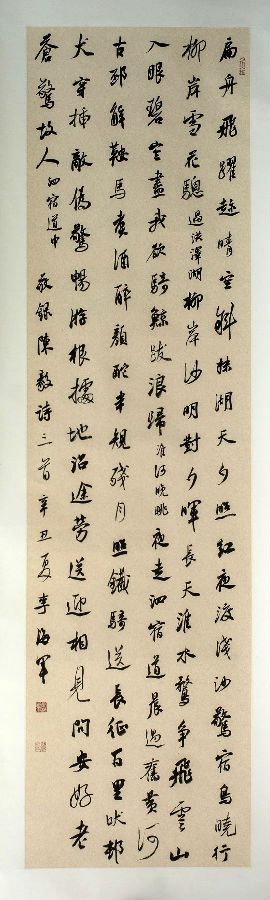 扁舟飛躍趁晴空斜抹湖天夕照紅夜渡淺沙驚宿鳥曉行
柳岸雪花驄過洪澤湖柳岸沙明對夕暉長天淮水鶩爭飛雲山
入眼碧空盡我欲騎鯨跋浪歸淮河晚眺夜走泗宿道晨過舊黃河
古邳解鞍馬索酒醉顏酡半規殘月照鐵騎送長征百里吠邨
犬穿插敵偽驚暢游根據地沿途勞送迎相見問安好老
蒼驚故人泗宿道中敬錄陳毅詩三首辛丑夏李海軍